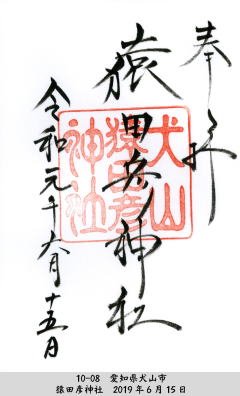 奉拝
猿田彦神社
犬山
猿田彦
神社
令和元年六月十五日
10-08　愛知県犬山市
猿田彦神社　2019年6月15日